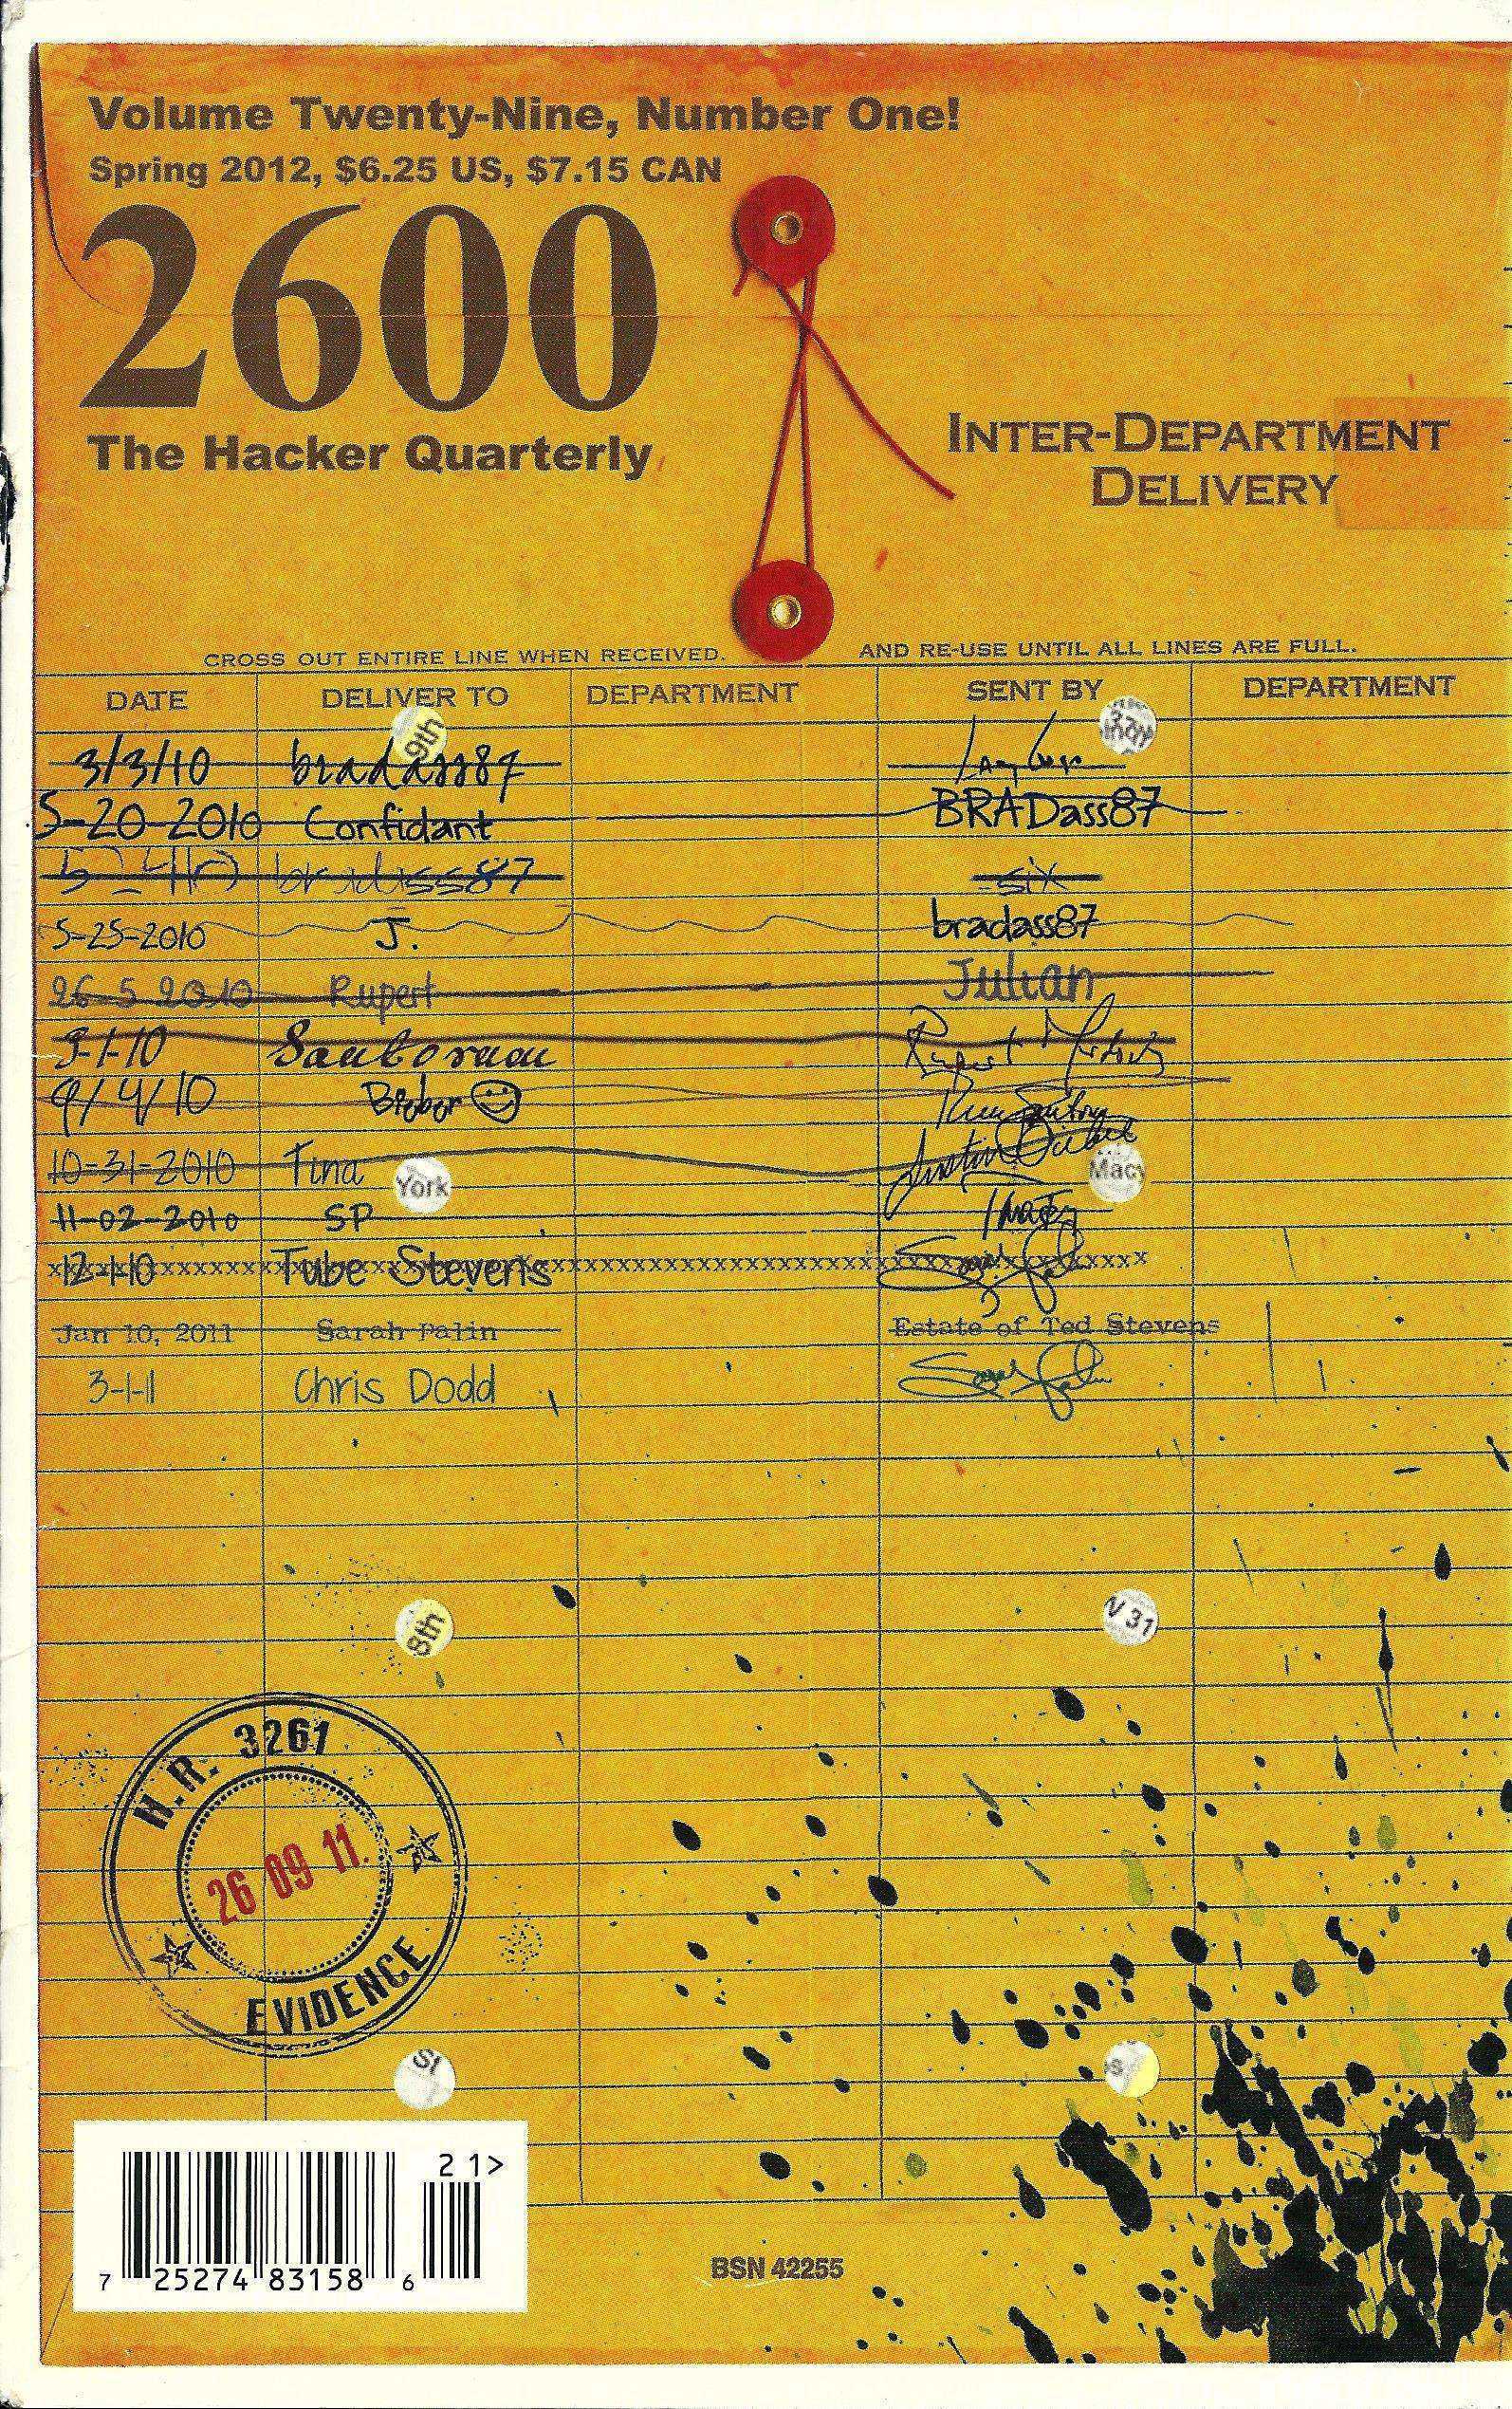 Volume Twenty-Nine, Number One!
Spring 2012, $6.25 US, $7.15 CAN
2600
The Hacker Quarterly
INTER-DEPARTMENT
DELIVERY
CROSS OUT ENTIRE LINE WHEN RECEIVED. AND RE-USE UNTIL ALL LINES ARE FULL.
DATE DELIVER TO DEPARTMENT SENT BY DEPARTMENT
9th
3/3/10 bradass87
5-20-2010 Confidant BRADass87
bradass87 six
5-25-2010 J. bradass87
26 5 2010 Rupert Julian
3-1-10 Rupert
9/4/10 Bieber
10-31-2010 Tina Justin
York Macy
11-02-2010 SP
12-1-10 Tube Stevens
Jan 10, 2011 Sarah Palin Estate of Ted Stevens
3-1-11 Chris Dodd
8th V 31
H.R. 3261
26 09 11.
EVIDENCE
St
2 1>
7 25274 83158 6
BSN 42255